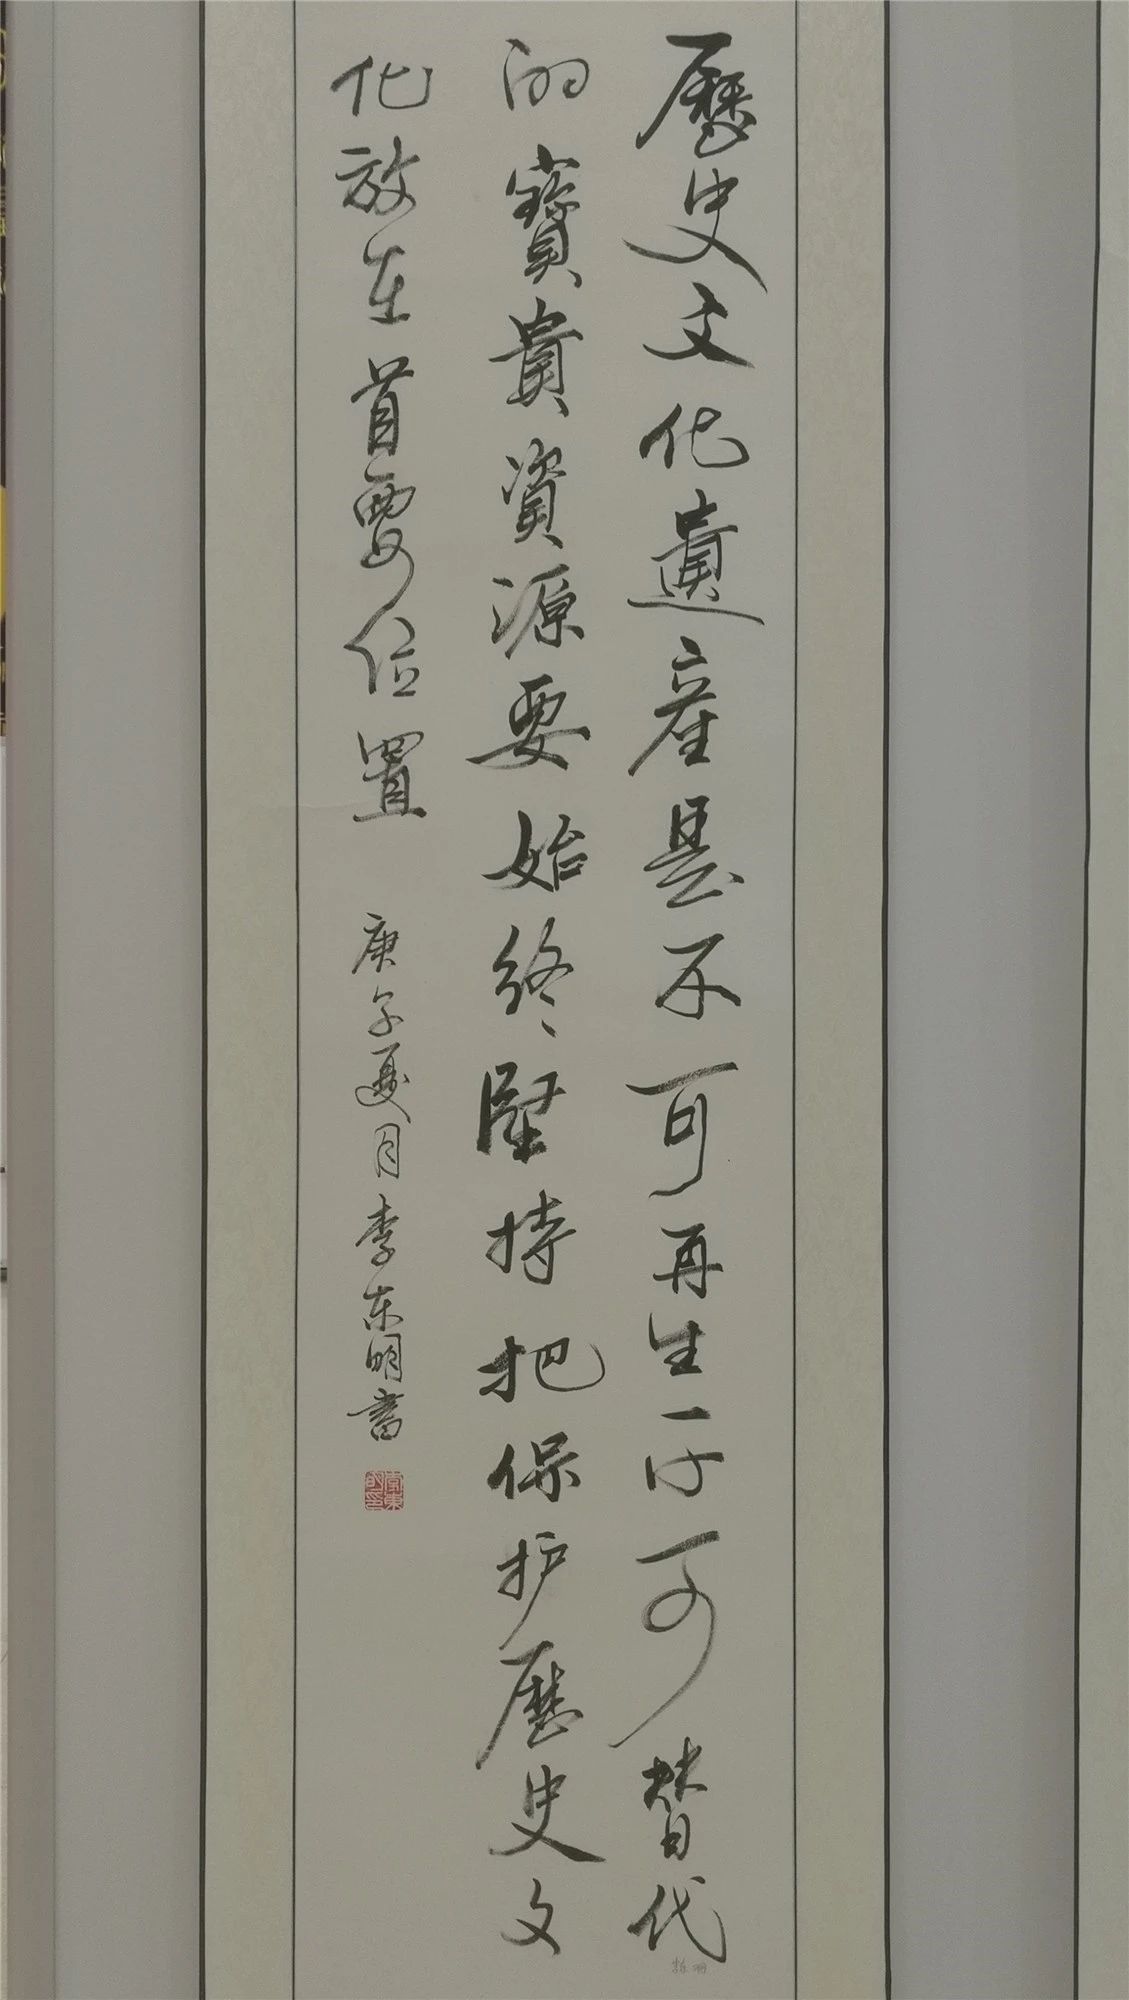 歷史文化遺產是不可再生不可替代
的寶貴資源要始終堅持把保护歷史文
化放在首要位置
庚子夏月李东明書
李東明印